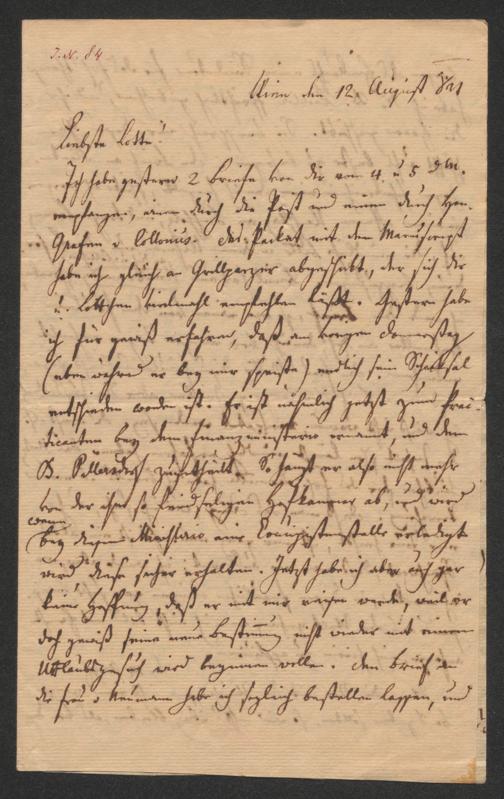 J. N. 84
Wien den 12. August 821
Liebste Lotte!
Ich habe gestern 2 Briefe von dir vom 4. u 5 d M.
empfangen, einen durch die Post und einen durch Hrn.
Grafen v. Das Packet mit dem Manuscript
habe ich gleich an Grillparzer abgeschickt, der sich dir
u. Lottchen vielmahl empfehlen läßt. Gestern habe
ich für gewiß erfahren, daß am vorigen Donnerstag
(eben während er bey mir speiste) endlich sein Schicksal
entschieden worden ist. Er ist nähmlich jetzt zum Prac-
ticanten bey dem Finanzministerio ernannt, und dem
B. Pillersdorf zugetheilt. So hängt er also nicht mehr
von der ihm so feindseligen Hofkammer ab, und wird
wenn
bey diesem Ministerio eine Concipistenstelle erledigt
wird diese sicher erhalten. Jetzt habe ich aber auch gar
keine Hoffnung, daß er mit mir reisen werde, weil er
doch gewiß seine neue Bestimmung nicht wieder mit einem
Urlaubsgesuch wird beginnen wollen. Den Brief an
die Frau v Neumann habe ich sogleich bestellen lassen, und